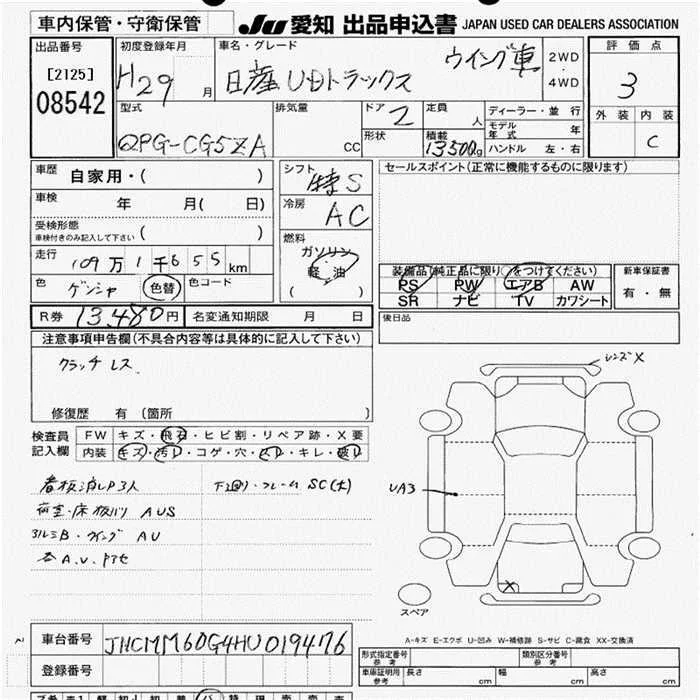 車内保管・守衛保管
JU 愛知 出品申込書 JAPAN USED CAR DEALERS ASSOCIATION
出品番号
[2125]
08542
初度登録年月
H29 月
車名・グレード
日産UDトラックス ウイング車
2WD
・
4WD
評価点
3
型式
QPG-CG5ZA
排気量
CC
ドア
2
形状
定員
人
積載
13500kg
ディーラー・並行
モデル年式 年
ハンドル 左・右
外装 内装
C
車歴
自家用・( )
車検 年 月( 日)
受検形態
車検付きのみ記入して下さい ( )
走行 109万1千655km
色 ゲンシャ 色替 色コード
シフト
特S
冷房
AC
燃料
ガソリン
軽・油
( )
セールスポイント(正常に機能するものに限ります)
装備品(純正品に限り○をつけてください)
PS PW エアB AW
SR ナビ TV カワシート
新車保証書
有・無
R券 13,480円 名変通知期限 月 日
後日品
注意事項申告欄(不具合内容等は具体的に記入して下さい)
クラッチレス
修復歴 有(箇所 )
検査員
記入欄
FW キズ・飛石・ヒビ割・リペア跡・X要
内装 キズ・汚レ・コゲ・穴・スレ・キレ・破レ
看板消しP3人
下廻り・フレームSC(大)
荷室・床板バリ AUS
アルミB・ウイング AU
A.V.Pアセ
レンズX
UA3
X
スペア
A-キズ E-エクボ U-凹み W-補修跡 S-サビ C-腐食 XX-交換済
車台番号 JHCMM60G4HU019476
登録番号
型式指定番号
参考
類別区分番号
参考
車庫証明
参考
長さ cm 幅 cm 高さ cm